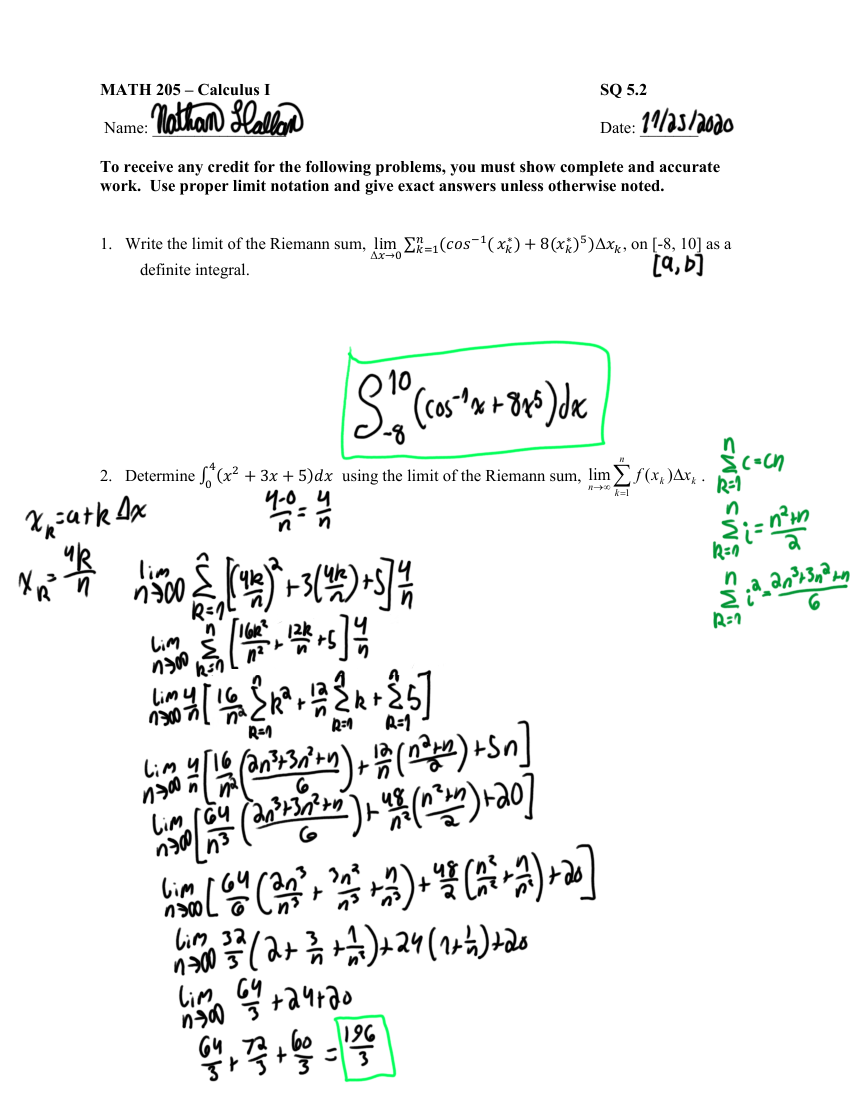 MATH 205 – Calculus I SQ 5.2
Name: Nathan Hallan Date: 11/25/2020
To receive any credit for the following problems, you must show complete and accurate
work. Use proper limit notation and give exact answers unless otherwise noted.
1. Write the limit of the Riemann sum, lim_{Δx→0} Σ_{k=1}^{n}(cos⁻¹(x_k^*) + 8(x_k^*)⁵)Δx_k, on [-8, 10] as a
definite integral.
[a,b]
∫_{-8}^{10} (cos⁻¹x + 8x⁵)dx
2. Determine ∫_0^4(x² + 3x + 5)dx using the limit of the Riemann sum, lim_{n→∞} Σ_{k=1}^{n} f(x_k)Δx_k .
Σ_{k=1}^{n} c = cn
Σ_{k=1}^{n} i = (n²+n)/2
Σ_{k=1}^{n} i² = (2n³+3n²+n)/6
x_k = a + k Δx
(4-0)/n = 4/n
x_k = 4k/n
lim_{n→∞} Σ_{k=1}^{n} [(4k/n)² + 3(4k/n) + 5] 4/n
lim_{n→∞} Σ_{k=1}^{n} [16k²/n² + 12k/n + 5] 4/n
lim_{n→∞} 4/n [16/n² Σ_{k=1}^{n} k² + 12/n Σ_{k=1}^{n} k + Σ_{k=1}^{n} 5]
lim_{n→∞} 4/n [16/n² ((2n³+3n²+n)/6) + 12/n ((n²+n)/2) + 5n]
lim_{n→∞} [64/n³ ((2n³+3n²+n)/6) + 48/n² ((n²+n)/2) + 20]
lim_{n→∞} [64/6 (2n³/n³ + 3n²/n³ + n/n³) + 48/2 (n²/n² + n/n²) + 20]
lim_{n→∞} 32/3 (2 + 3/n + 1/n²) + 24(1 + 1/n) + 20
lim_{n→∞} 64/3 + 24 + 20
64/3 + 72/3 + 60/3 = 196/3